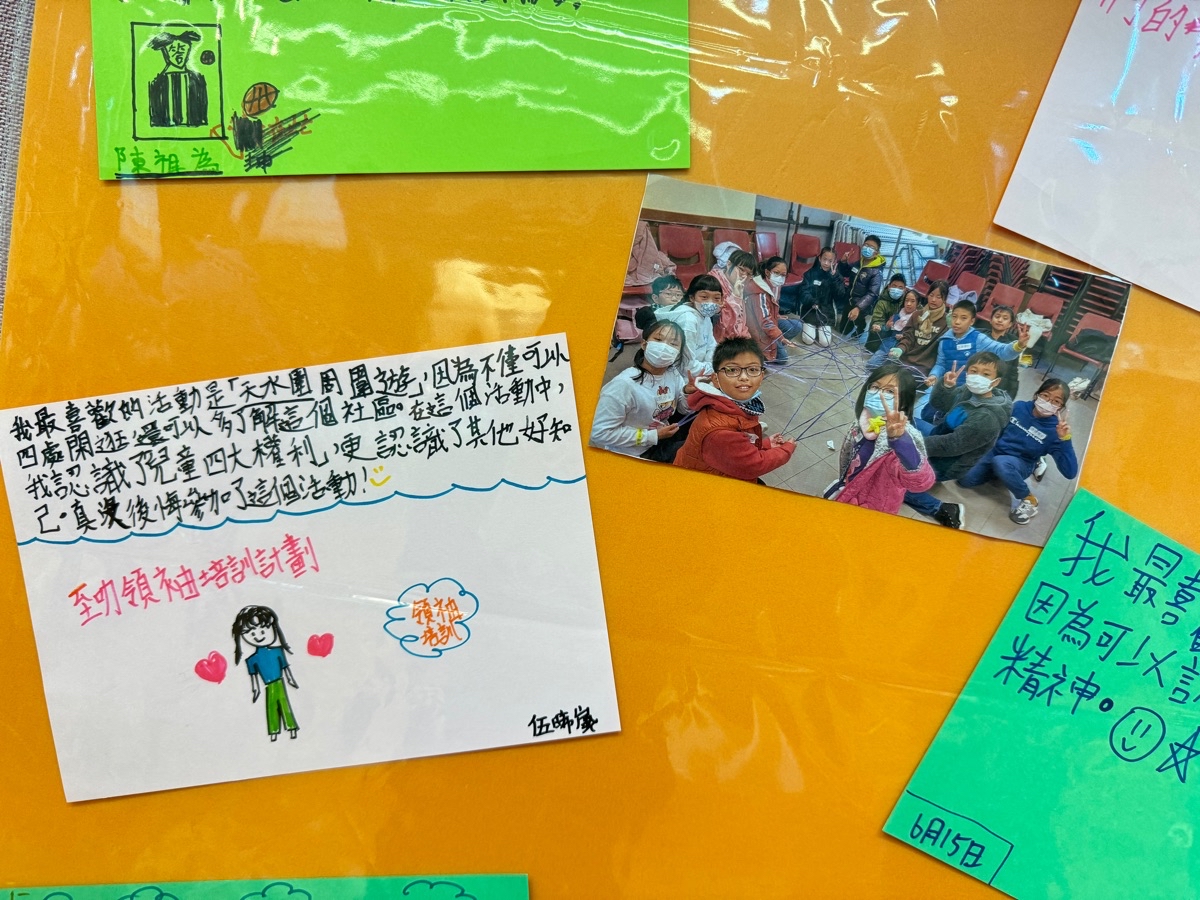 陳雅為
我最喜歡的活動是「天水圍周圍遊」,因為不僅可以
四處閒逛,還可以多了解這個社區。在這個活動中,
我認識了兒童四大權利,更認識了其他好知
己。真沒後悔參加了這個活動!
至叻領袖培訓計劃
領袖
培訓
我最喜
因為可以
精神。
6月15日